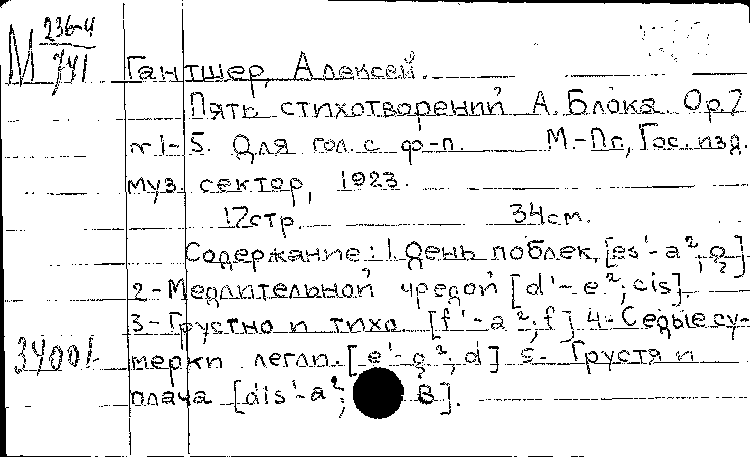 М 236-4/741
Гантшер, Алексей.
Пять стихотворений А. Блока. Op.7
№1-5. Для гол. с ф-п. М.-Пг., Гос. изд.
муз. сектор, 1923.
12стр. 34см.
Содержание: 1. День поблек. [es'-a²; g]
2-Медлительной чредой [d'-e²; cis].
3-Грустно и тихо. [f'-a²; f] 4-Седые су-
мерки легли. [e'-g²; d] 5- Грустя и
плача [dis'-a²; B].